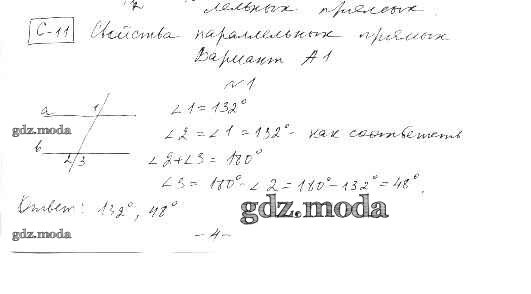 лельных прямых.
С-11 Свойства параллельных прямых
Вариант А1
№1
a 1
∠1 = 132°
gdz.moda
∠2 = ∠1 = 132° - как соответств
b
2 3
∠2+∠3 = 180°
∠3 = 180° - ∠2 = 180° - 132° = 48°.
Ответ: 132°, 48°
gdz.moda
gdz.moda
- 4 -